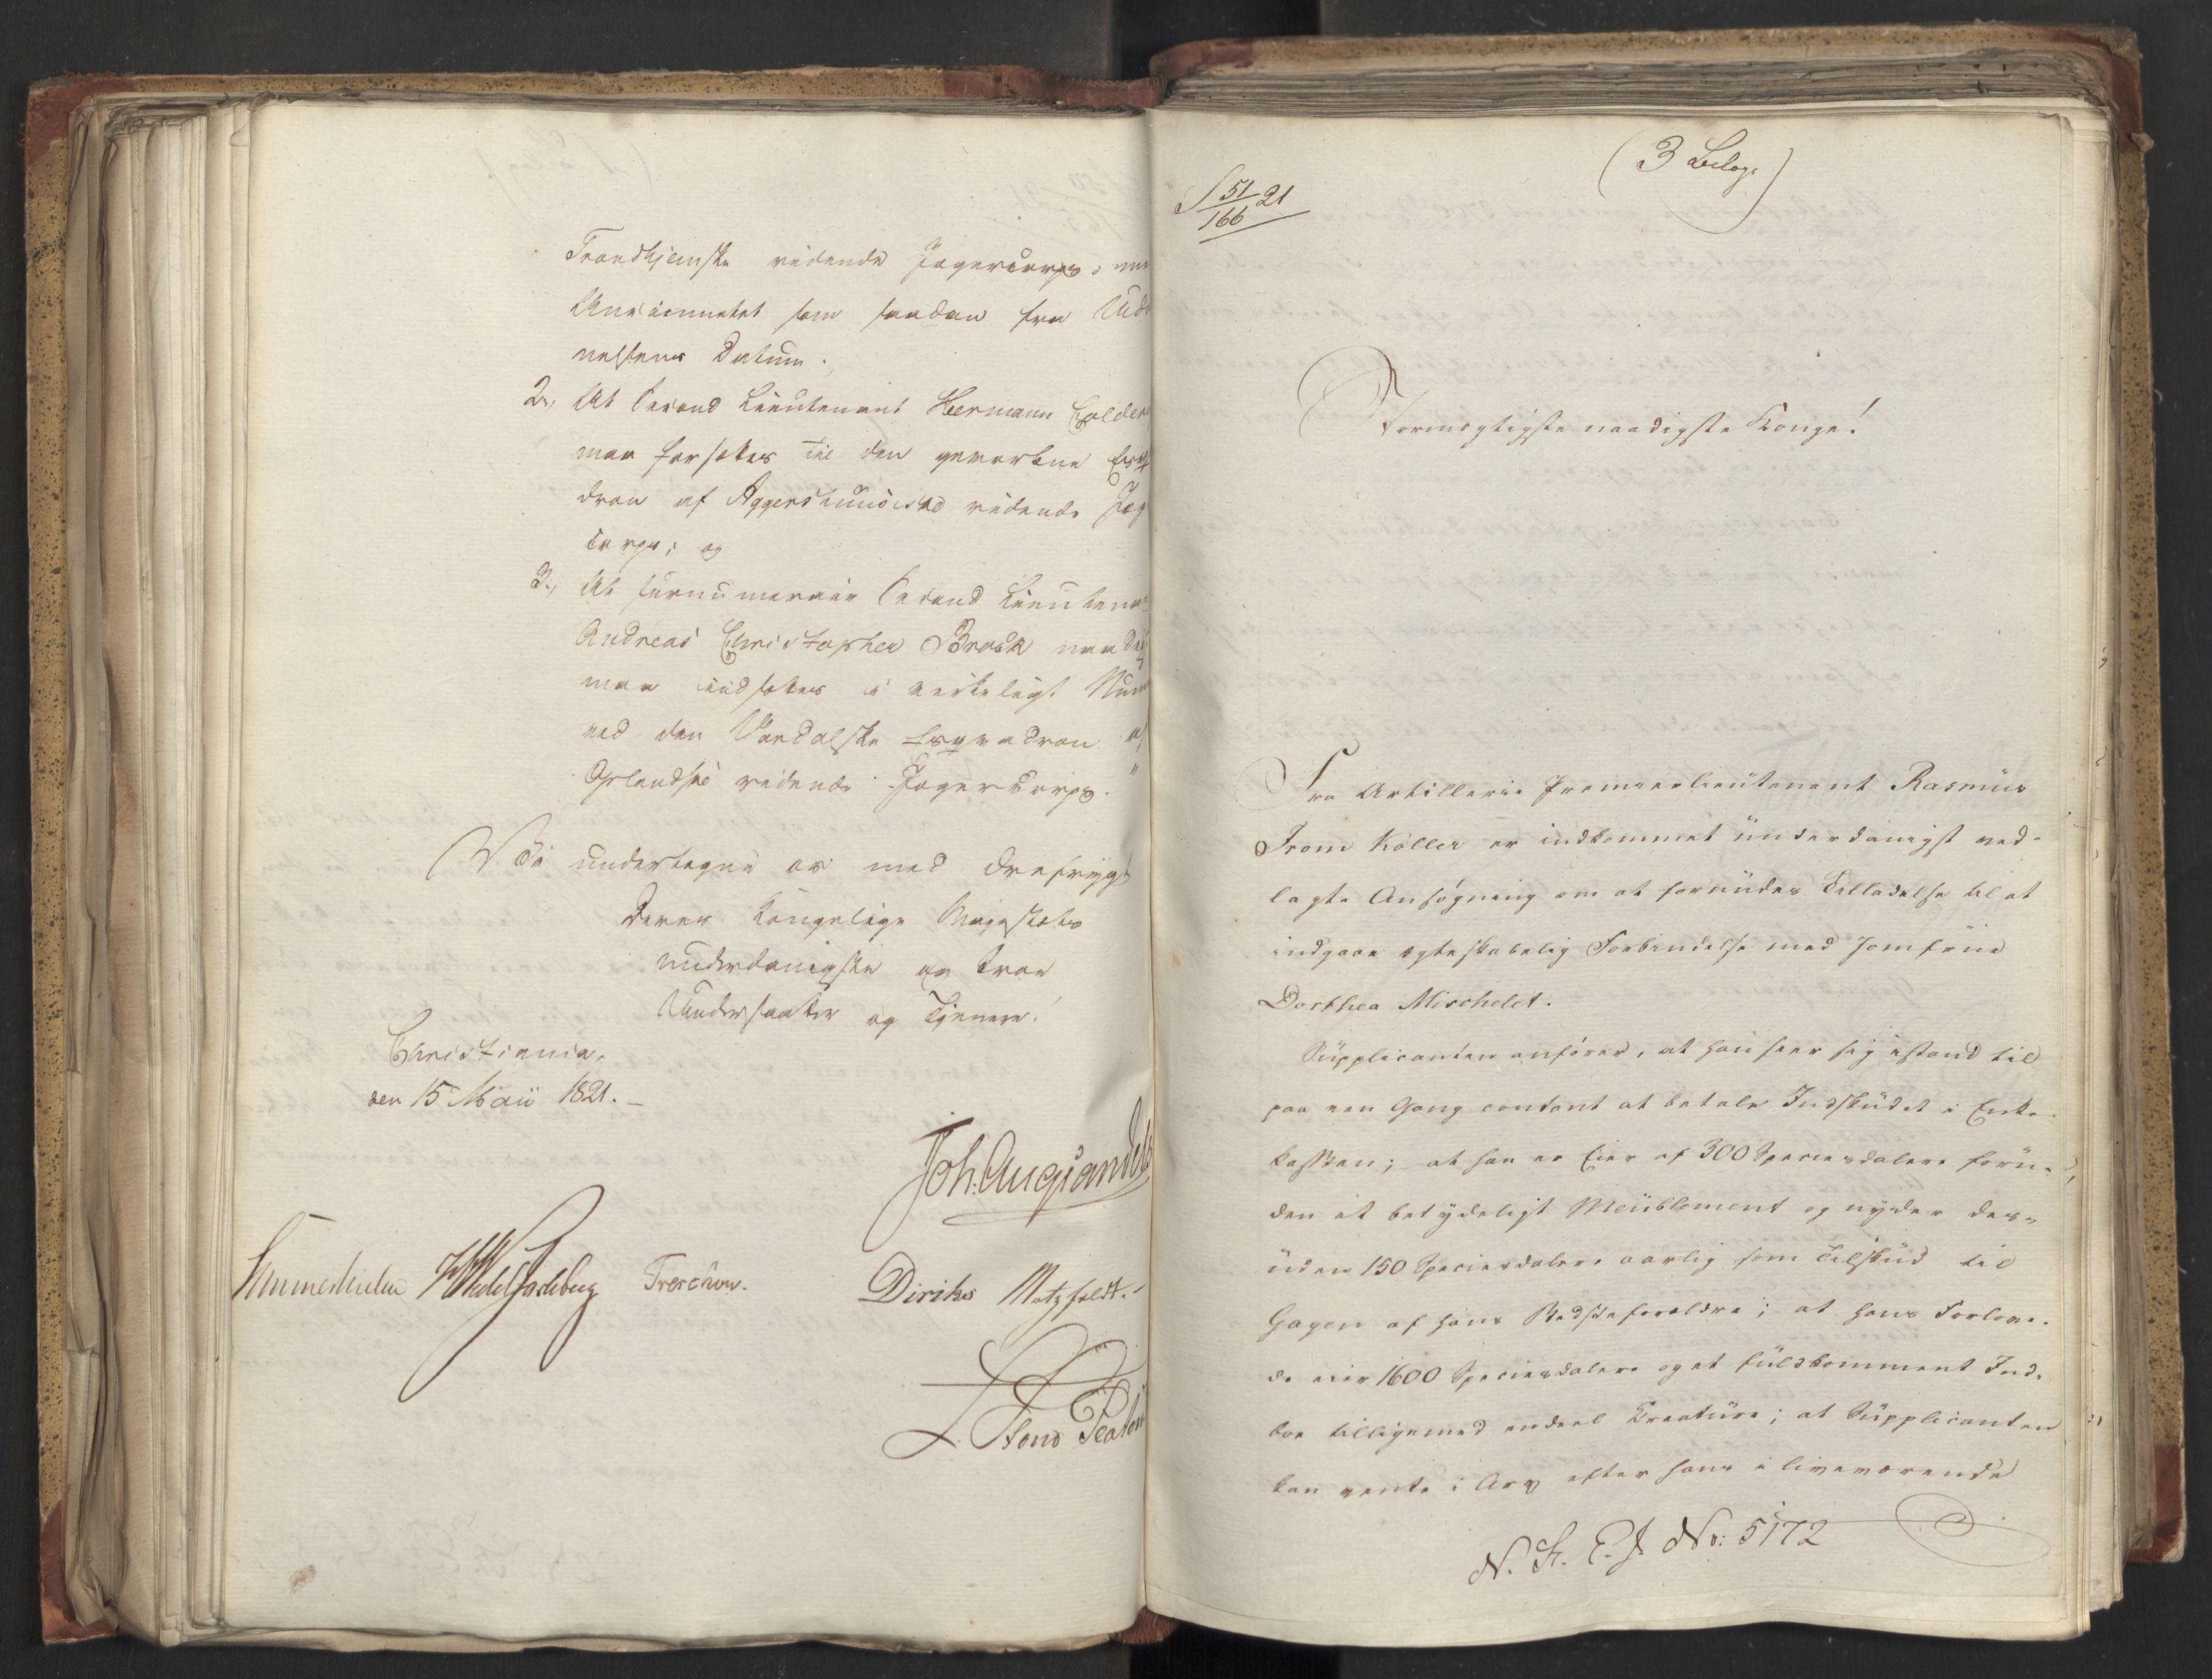 Trondhjemske ridende Jægercorps, med
Anciennetet som saadan fra Udnæv
nelsens Datum.
2., At Second Lieutenant Hermann Colden
maa forsættes til den gevorbne Esqva
dron af Aggershuusiske ridende Jæger
corps; og
3., At surnumerair Second Lieutenant
Andreas Christopher Brock naadigst
maa indsættes i virkeligt Nummer
ved den Værdalske Esqvadron af
Ørlandske ridende Jægercorps.
Vi undertegne os med Dybfrygt
Deres Kongelige Majestæts
underdanigste og troe
Undersaatter og Tjenere!
Christiania,
den 15 Maii 1821.
Joh. Aug. Sandels
Sommerhielm HWedelJarlsberg Treschow. Diriks Motzfeldt.
L. Stoud Platou
S 51/166 21
(3 Bilag.)
Stormægtigste naadigste Konge!
Fra Artillerie Premierlieutenant Rasmus
From Köller er indkommet underdanigst ved-
lagte Ansøgning om at forundes Tilladelse til at
indgaae ægteskabelig Forbindelse med Jomfrue
Dorthea Mischelet.
Supplicanten anfører, at han seer sig istand til
paa een Gang contant at betale Indskudet i Enke-
kassen; at han er Eier af 300 Speciesdalere foru-
den et betydeligt Meublement og nyder des-
uden 150 Speciesdalere aarlig som Tilskud til
Gagen af hans Bedsteforældre; at hans Forlove-
de eier 1600 Speciesdalere og et fuldkomment Ind-
boe tilligemed endeel Creature; at Supplicanten
kan vente i Arv efter hans i live værende
N. St. E. J. No: 5172